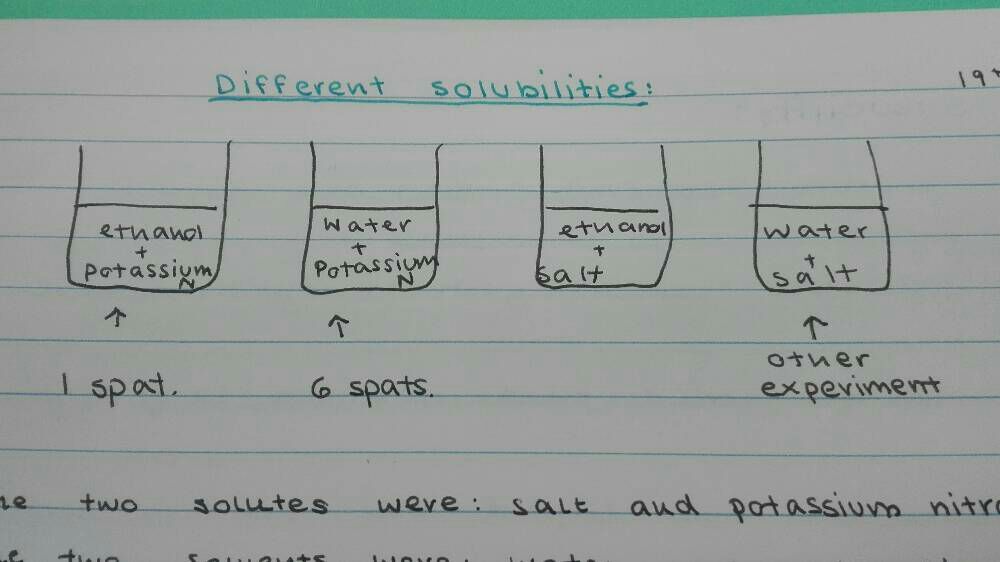 Different solubilities:
ethanol
+
potassium
N
water
+
potassium
N
ethanol
+
salt
water
+
salt
↑
↑
↑
1 spat.
6 spats.
other
experiment
two solutes were: salt and potassium
two